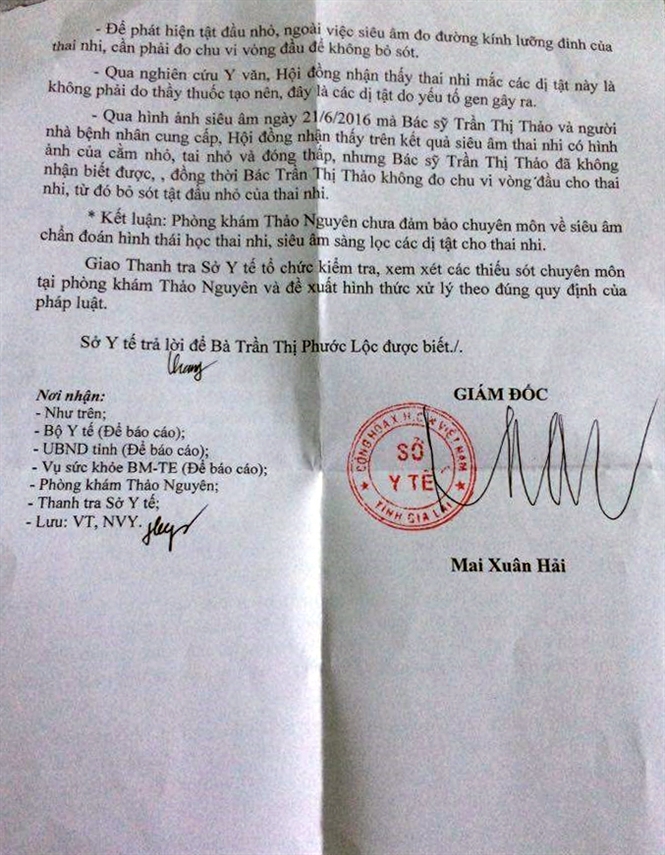 - Để phát hiện tật đầu nhỏ, ngoài việc siêu âm đo đường kính lưỡng đỉnh của
thai nhi, cần phải đo chu vi vòng đầu để không bỏ sót.
- Qua nghiên cứu Y văn, Hội đồng nhận thấy thai nhi mắc các dị tật này là
không phải do thầy thuốc tạo nên, đây là các dị tật do yếu tố gen gây ra.
- Qua hình ảnh siêu âm ngày 21/6/2016 mà Bác sỹ Trần Thị Thảo và người
nhà bệnh nhân cung cấp, Hội đồng nhận thấy trên kết quả siêu âm thai nhi có hình
ảnh của cằm nhỏ, tai nhỏ và đóng thấp, nhưng Bác sỹ Trần Thị Thảo đã không
nhận biết được, , đồng thời Bác Trần Thị Thảo không đo chu vi vòng đầu cho thai
nhi, từ đó bỏ sót tật đầu nhỏ của thai nhi.
* Kết luận: Phòng khám Thảo Nguyên chưa đảm bảo chuyên môn về siêu âm
chẩn đoán hình thái học thai nhi, siêu âm sàng lọc các dị tật cho thai nhi.
Giao Thanh tra Sở Y tế tổ chức kiểm tra, xem xét các thiếu sót chuyên môn
tại phòng khám Thảo Nguyên và đề xuất hình thức xử lý theo đúng quy định của
pháp luật.
Sở Y tế trả lời để Bà Trần Thị Phước Lộc được biết./.
Nơi nhận:
- Như trên;
- Bộ Y tế (Để báo cáo);
- UBND tỉnh (Để báo cáo);
- Vụ sức khỏe BM-TE (Để báo cáo);
- Phòng khám Thảo Nguyên;
- Thanh tra Sở Y tế;
- Lưu: VT, NVY.
GIÁM ĐỐC
CỘNG HÒA X.H.C.N VIỆT NAM
SỞ
Y TẾ
TỈNH GIA LAI
Mai Xuân Hải